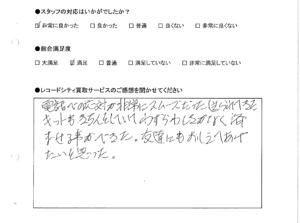 ●スタッフの対応はいかがでしたか?
☑ 非常に良かった □ 良かった □ 普通 □ 良くない □ 非常に良くない
●総合満足度
□ 大満足 ☑ 満足 □ 普通 □ 満足していない □ 非常に満足していない
●レコードシティ買取サービスのご感想を聞かせてください
電話での応対が非常にスムーズだった。送られてきた
キットもきちんとしていて、わずらわしさがなく済
ませる事ができた。友達にもおしえてあげ
たいと思った。